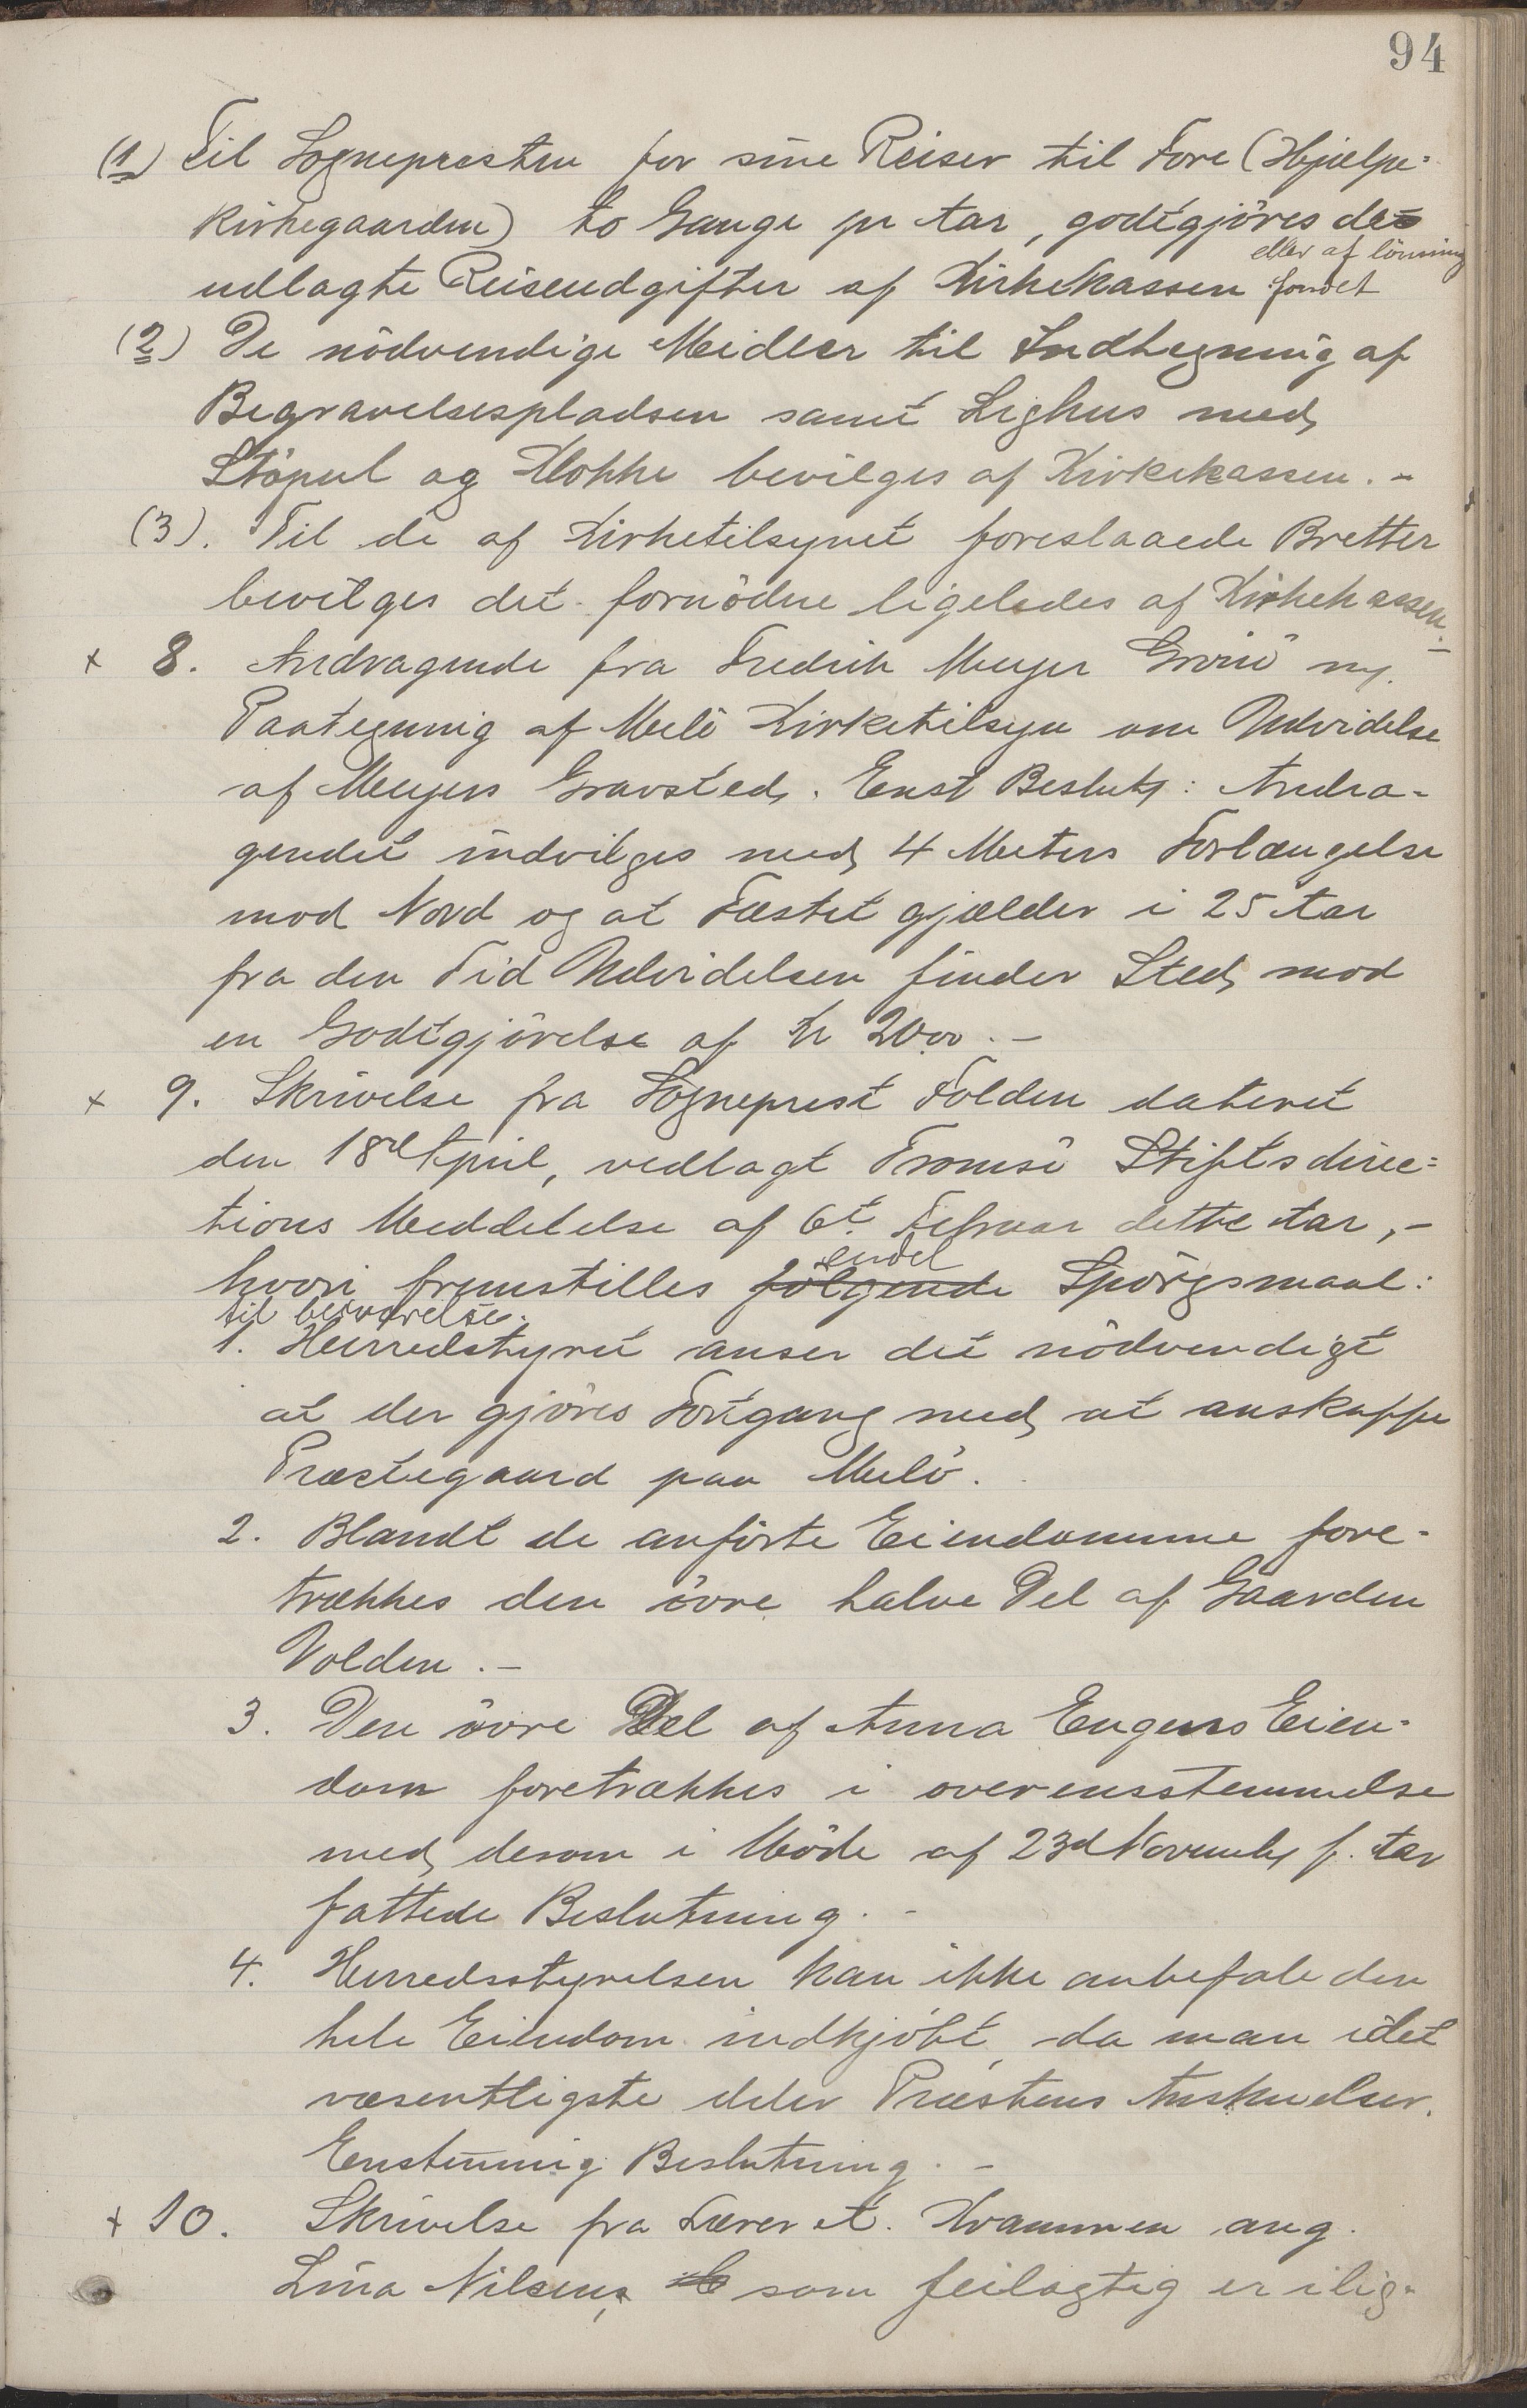 94
(1) Til Sognepresten for sine Reiser til Fore (Hjælpe=
kirkegaarden) to Gange pr Aar, godtgjöres de
eller af lönning
udlagte Reiseudgifter af Kirkekassen fondet
(2) De nödvendige Meidler til Indhegning af
Begravelsespladsen samt Lighus med
Stöpul og Klokke bevilges af Kirkekassen. -
(3). Til de af Kirketilsynet foreslaaede Bretter
bevilges det fornödne ligeledes af Kirkekassen. -
x 8. Andragende fra Fredrik Meyer Grönö m.
Paategning af Melö Kirketilsyn om Udvidelse
af Meyers Gravsted. Enst Beslutn: Andra-
gendet indvilges med 4 Meters Forlængelse
mod Nord og at Fæstet gjælder i 25 Aar
fra den Tid Udvidelsen finder Sted mod
en Godtgjörelse af Kr 20.00. -
x 9. Skrivelse fra Sogneprest Folden dateret
den 18de April, vedlagt Tromsö Stiftsdirec=
tions Meddelelse af 6te Februar dette Aar, -
endel
hvori fremstilles fölgende Spörgsmaal:
til besvarelse.
1. Herredstyret anser det nödvendigt
at der gjöres Fortgang med at anskaffe
Præstegaard paa Melö.
2. Blandt de anförte Eiendomme fore-
trækkes den övre halve Del af Gaarden
Volden. -
3. Den övre Del af Anna Engens Eien-
dom foretrækkes i overensstemmelse
med desom i Möde af 23d Novembr f. Aar
fattede Beslutning. -
4. Herredsstyrelsen kan ikke anbefale den
hele Eiendom indkjöbt, da man idet
væsentligste deler Præstens Anskuelser.
Enstemmig Beslutning. -
x 10. Skrivelse fra Lærer A. Kvammen ang.
Lina Nilsens som feilagtig er ilig-